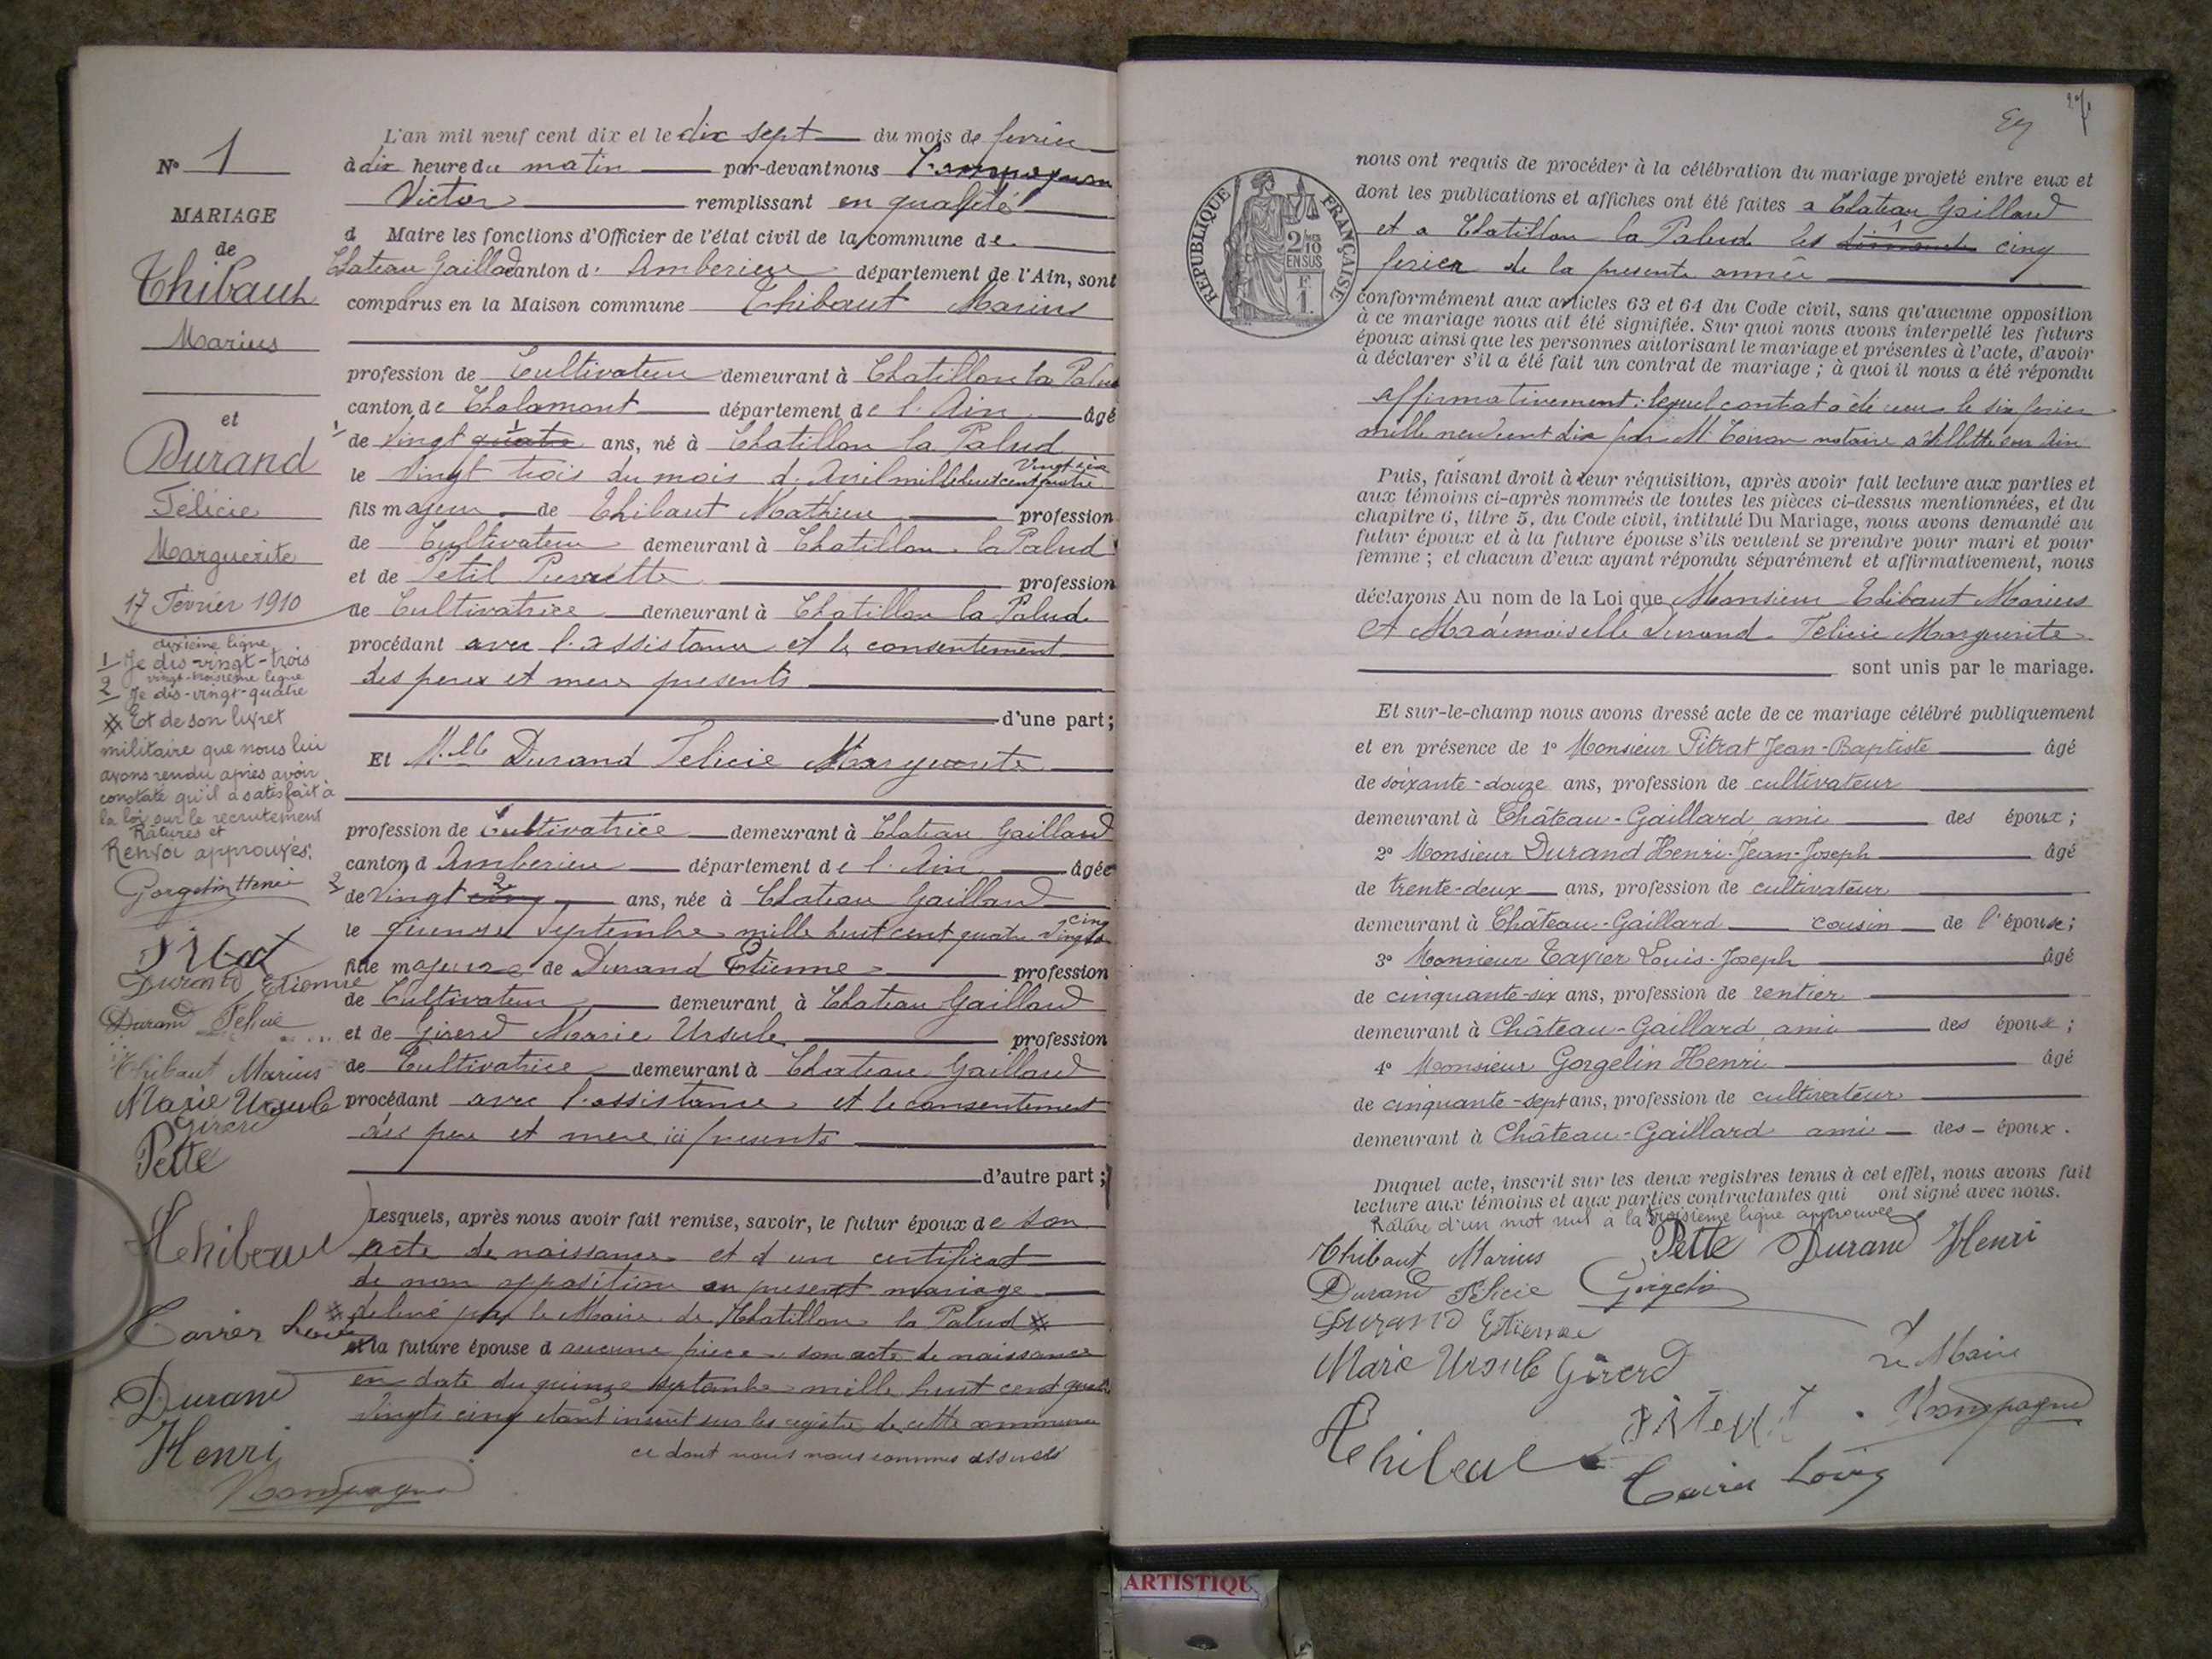 N° 1
MARIAGE
de
Thibaut
Marius
et
Durand
Félicie
Marguerite
17 Février 1910
dixième ligne
1 Je dis-vingt-trois
vingt-troisième ligne
2 Je dis-vingt-quatre
Et de son livret
militaire que nous lui
avons rendu après avoir
constaté qu'il a satisfait à
la loi sur le recrutement
Ratures et
Renvoi approuvés.
Gorgelin Henri
Pitrat
Durand Etienne
Durand Félicie
Thibaut Marius
Marie Ursule
Girerd
Pette
Thibeaut
Tavier Louis
Durand
Henri
Compagne
L'an mil neuf cent dix et le dix sept du mois de fevrier
à dix heure du matin par-devant nous
Victor remplissant en qualité
d Maire les fonctions d'Officier de l'état civil de la commune de
Chateau Gaillard canton d' Amberieu département de l'Ain, sont
comparus en la Maison commune Thibaut Marius
profession de Cultivateur demeurant à Chatillon la Palud
canton de Chalamont département de l'Ain âgé
1 de vingt quatre ans, né à Chatillon la Palud
le vingt trois du mois d'Avril mille huit cent quatre vingt six
fils majeur de Thibaut Mathieu profession
de Cultivateur demeurant à Chatillon la Palud
et de Petit Pierrette profession
de Cultivatrice demeurant à Chatillon la Palud
procédant avec l'assistance et le consentement
des pere et mere presents
d'une part;
Et Mlle Durand Felicie Marguerite
profession de Cultivatrice demeurant à Chateau Gaillard
canton d Amberieu département de l'Ain âgée
2 de vingt cinq ans, née à Chateau Gaillard
le quinze septembre mille huit cent quatre vingts cinq
fille majeure de Durand Etienne profession
de Cultivateur demeurant à Chateau Gaillard
et de Girerd Marie Ursule profession
de Cultivatrice demeurant à Chateau Gaillard
procédant avec l'assistance et le consentement
des pere et mere ici presents
d'autre part;
Lesquels, après nous avoir fait remise, savoir, le futur époux de son
acte de naissance et d'un certificat
de non opposition au present mariage
delivré par le Maire de Chatillon la Palud
et la future épouse d aucune piece son acte de naissance
en date du quinze septembre mille huit cent quatre
vingts cinq étant inscrit sur les registre de cette commune
ce dont nous nous sommes assurés
RÉPUBLIQUE FRANÇAISE
2/10
EN SUS
F.
1.
nous ont requis de procéder à la célébration du mariage projeté entre eux et
dont les publications et affiches ont été faites a Chateau Gaillard
et a Chatillon la Palud les dimanche cinq
fevrier de la presente année
conformément aux articles 63 et 64 du Code civil, sans qu'aucune opposition
à ce mariage nous ait été signifiée. Sur quoi nous avons interpellé les futurs
époux ainsi que les personnes autorisant le mariage et présentes à l'acte, d'avoir
à déclarer s'il a été fait un contrat de mariage; à quoi il nous a été répondu
affirmativement: lequel contrat a été reçu le six fevrier
mille neuf cent dix par M notaire a Villette sur Ain
Puis, faisant droit à leur réquisition, après avoir fait lecture aux parties et
aux témoins ci-après nommés de toutes les pièces ci-dessus mentionnées, et du
chapitre 6, titre 5, du Code civil, intitulé Du Mariage, nous avons demandé au
futur époux et à la future épouse s'ils veulent se prendre pour mari et pour
femme; et chacun d'eux ayant répondu séparément et affirmativement, nous
déclarons Au nom de la Loi que Monsieur Thibaut Marius
et Mademoiselle Durand Felicie Marguerite
sont unis par le mariage.
Et sur-le-champ nous avons dressé acte de ce mariage célébré publiquement
et en présence de 1° Monsieur Pitrat Jean-Baptiste âgé
de soixante-douze ans, profession de cultivateur
demeurant à Château-Gaillard ami des époux;
2° Monsieur Durand Henri-Jean-Joseph âgé
de trente-deux ans, profession de cultivateur
demeurant à Château-Gaillard cousin de l'épouse;
3° Monsieur Tavier Louis-Joseph âgé
de cinquante-six ans, profession de rentier
demeurant à Château-Gaillard ami des époux;
4° Monsieur Gorgelin Henri âgé
de cinquante-sept ans, profession de cultivateur
demeurant à Château-Gaillard ami des époux.
Duquel acte, inscrit sur les deux registres tenus à cet effet, nous avons fait
lecture aux témoins et aux parties contractantes qui ont signé avec nous.
Rature d'un mot nul à la troisième ligne approuvée
Thibaut Marius Pette Durand Henri
Durand Félicie Gorgelin
Durand Etienne
Marie Ursule Girerd Le Maire
Pitrat Compagne
Thibeaut Tavier Louis
ARTISTIQU